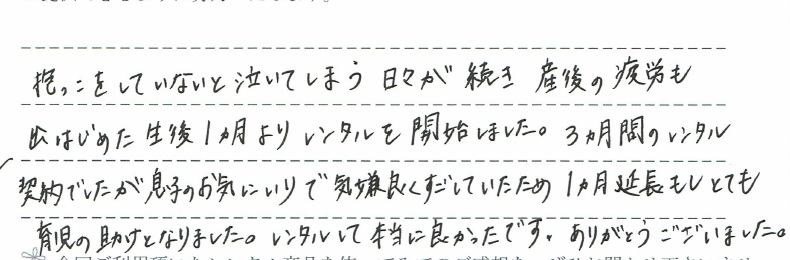 抱っこをしていないと泣いてしまう 日々が 続き 産後の 疲労も
出はじめた 生後1ヵ月より レンタルを 開始しました。3ヵ月間のレンタル
契約でしたが 息子のお気にいりで 気嫌良くすごしていたため 1ヵ月延長もし とても
育児の助けとなりました。レンタルして 本当に良かったです。ありがとうございました。